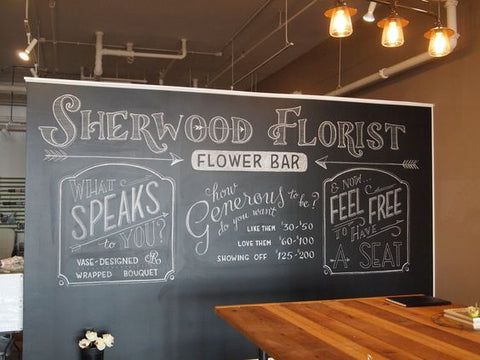 SHERWOOD FLORIST
FLOWER BAR
WHAT
SPEAKS
to YOU?
VASE-DESIGNED OR
WRAPPED BOUQUET
how
Generous to be?
do you want
LIKE THEM $30-$50
LOVE THEM $60-$100
SHOWING OFF $125-$200
& NOW...
FEEL FREE
TO HAVE
A SEAT